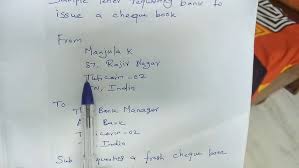 Sample letter requesting bank to
issue a cheque book
From
Manjula K
37. Rajiv Nagar
Tuticorin -02
India
To
Bank Manager
Bank
-02
India
Sub a fresh cheque book